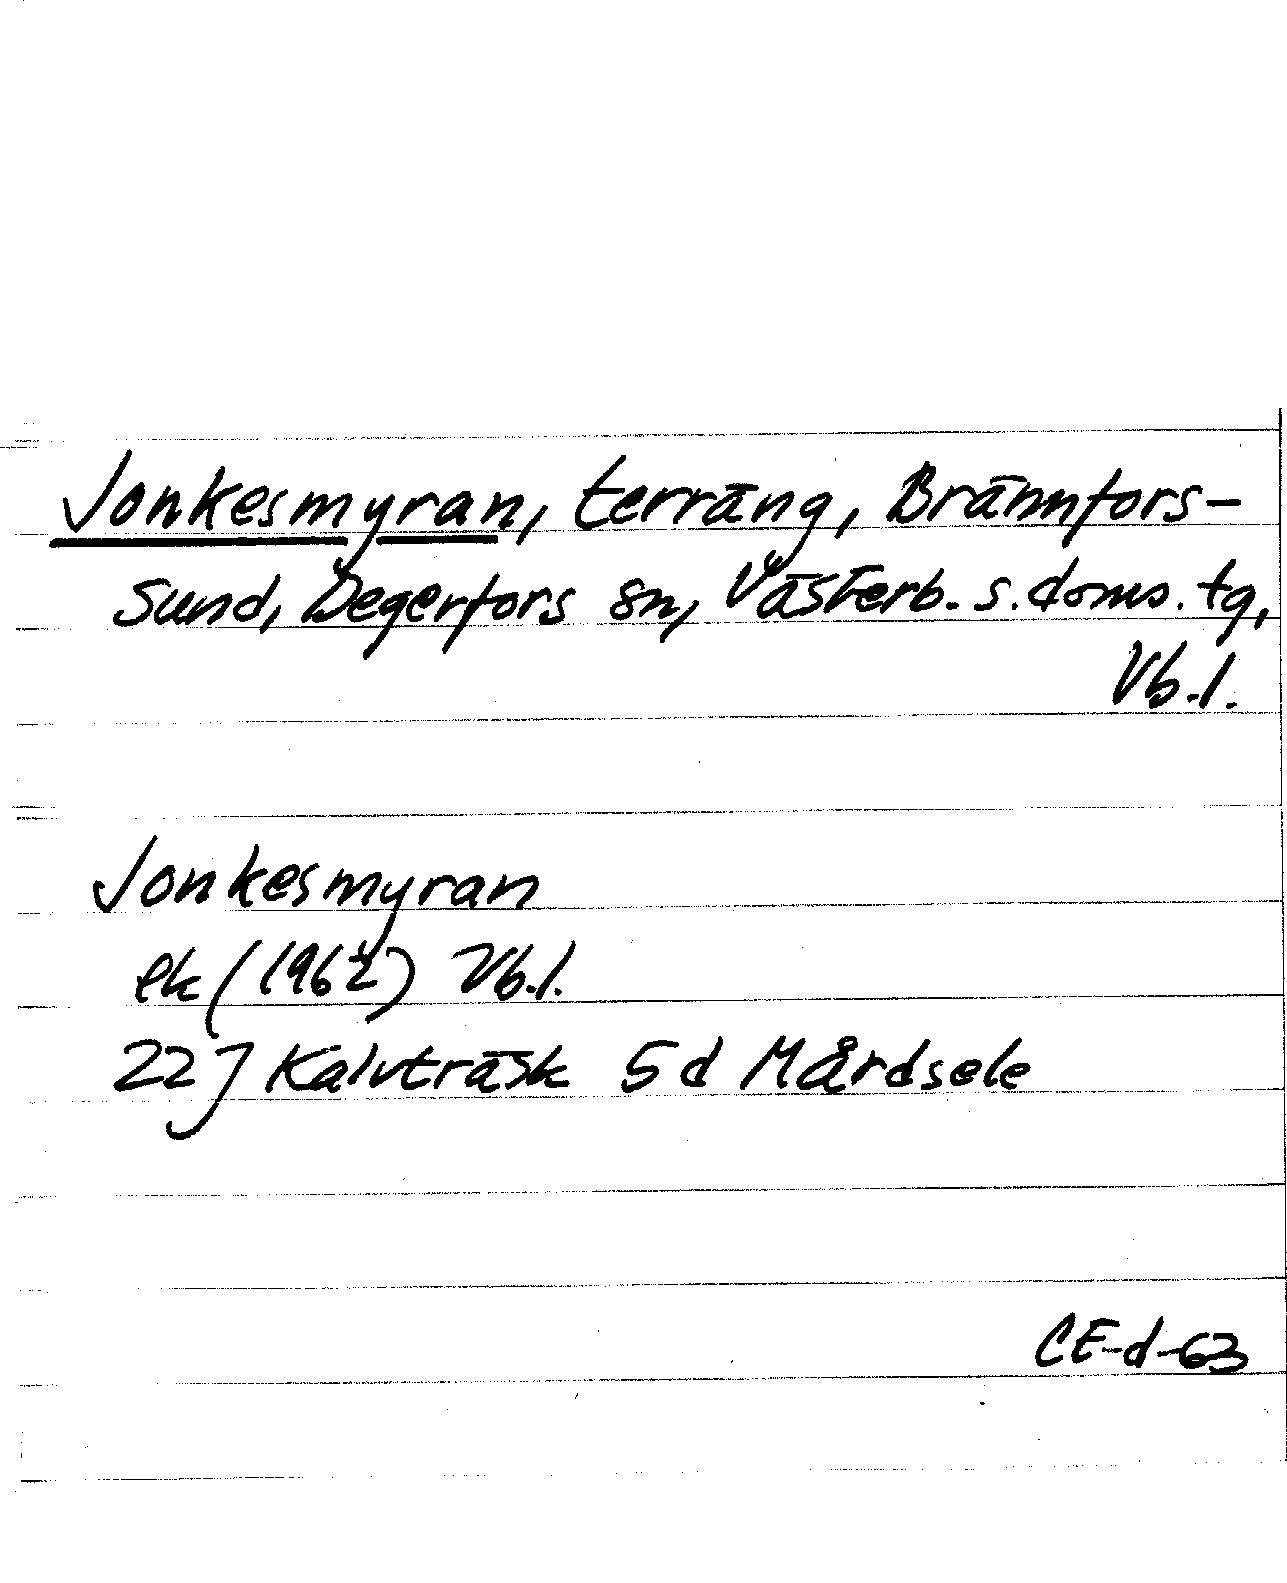 Jonkesmyran, terräng, Brännfors-
sund, Degerfors sn, Västerb. s. doms. tg,
Vb. l.
Jonkesmyran
ek (1962) Vb. l.
22 J Kalvträsk 5 d Mårdsele
CE-d-63